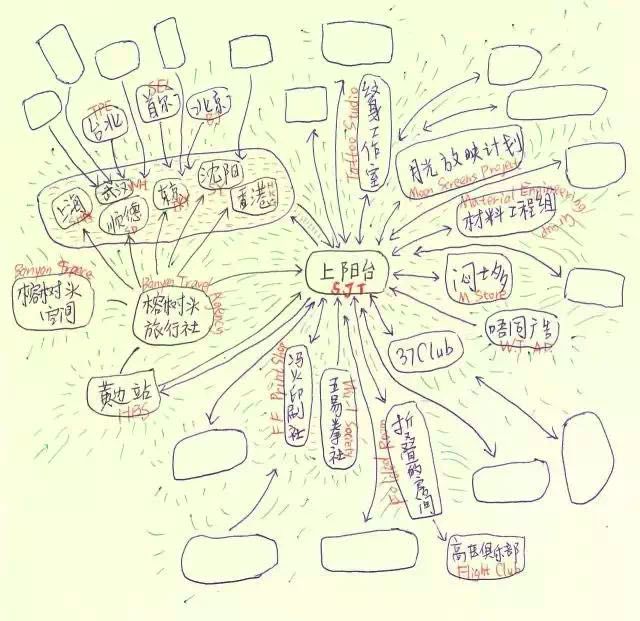 TPE
台北
SEL
首尔
北京
BJ
上海
武汉
WH
顺德
SD
东京
沈阳
SY
香港
HK
纹身工作室
Tattoo Studio
月光放映计划
Moon Screens Project
Material Engineering
Group
材料工程组
上阳台
SJT
沁士多
M Store
唔同广告
WT AD
37Club
Banyan Space
榕树头
空间
Banyan Travel
Agency
榕树头
旅行社
黄边站
HBS
冯火印刷社
FF Print Shop
五易拳社
Wu Yi Society
折叠的房间
Folded Room
高臣俱乐部
Flight Club